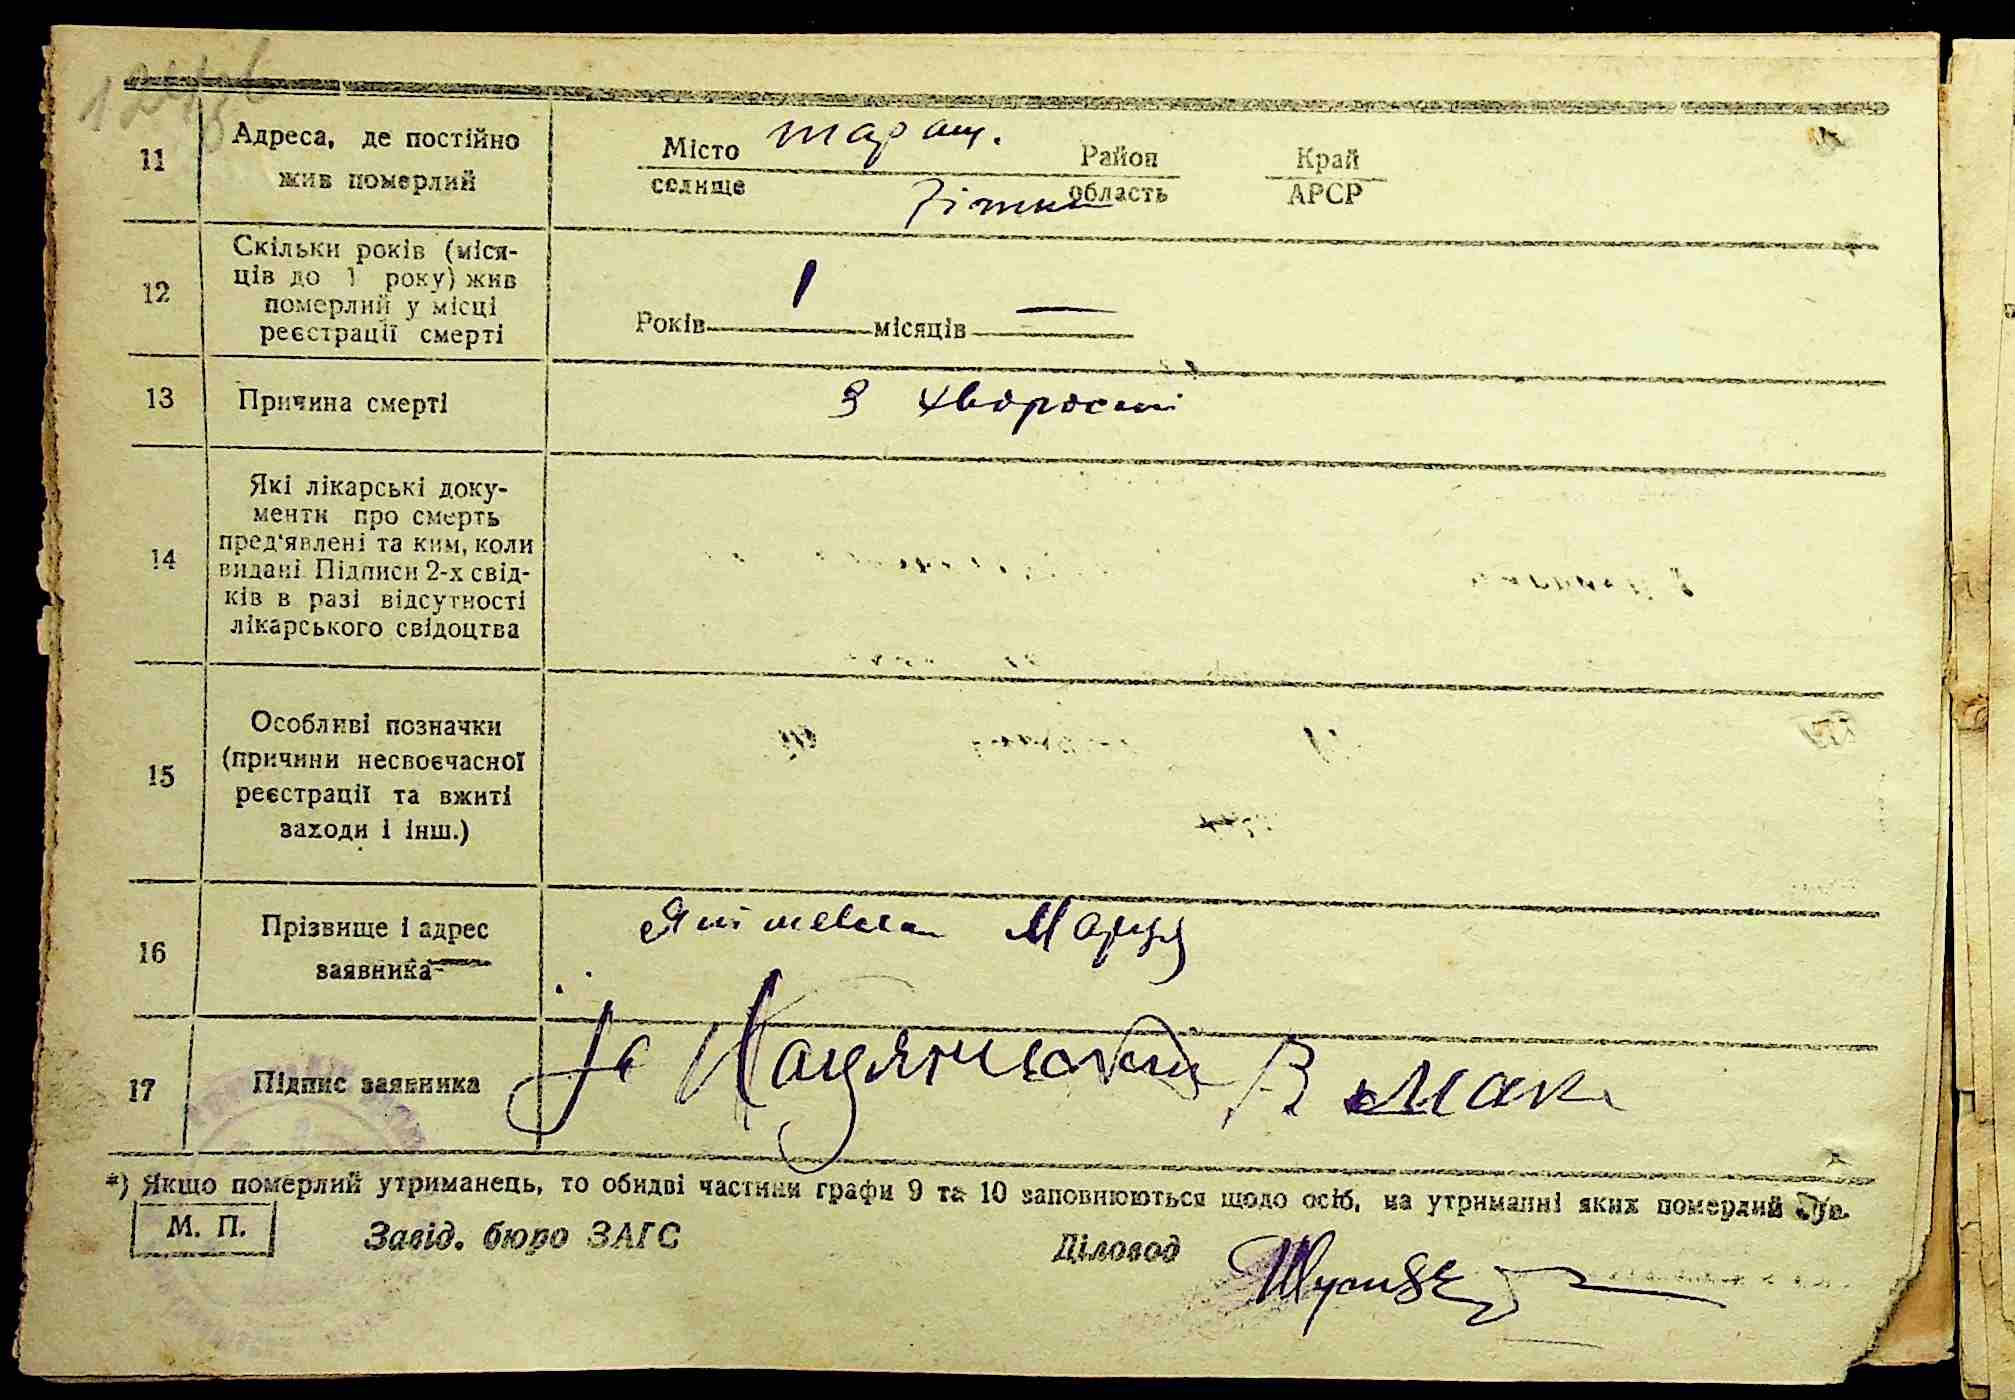 11
Адреса, де постійно
жив померлий
Місто Таращ. Район Край
селище область АРСР
12
Скільки років (міся-
ців до 1 року) жив
померлий у місці
реєстрації смерті
Років 1 місяців —
13
Причина смерті
З хворості
14
Які лікарські доку-
менти про смерть
пред'явлені та ким, коли
видані Підписи 2-х свід-
ків в разі відсутності
лікарського свідоцтва
15
Особливі позначки
(причини несвоєчасної
реєстрації та вжиті
заходи і інш.)
16
Прізвище і адрес
заявника
17
Підпис заявника
*) Якщо померлий утриманець, то обидві частини графи 9 та 10 заповнюються щодо осіб, на утриманні яких померлий був.
М. П.
Завід. бюро ЗАГС
Діловод